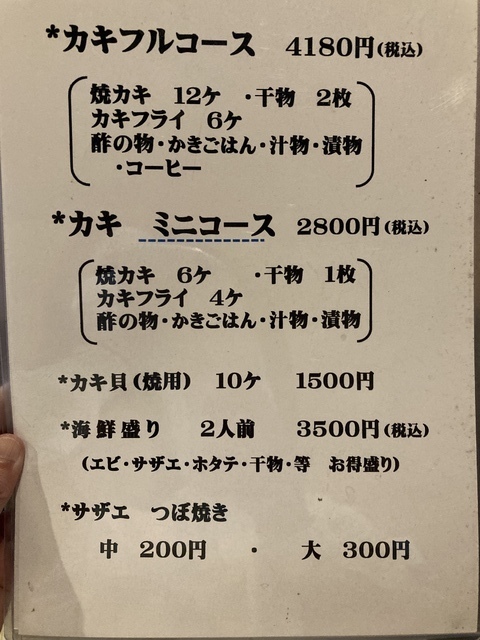 *カキフルコース 4180円(税込)
焼カキ 12ケ ・干物 2枚
カキフライ 6ケ
酢の物・かきごはん・汁物・漬物
・コーヒー
*カキ ミニコース 2800円(税込)
焼カキ 6ケ ・干物 1枚
カキフライ 4ケ
酢の物・かきごはん・汁物・漬物
*カキ貝(焼用) 10ケ 1500円
*海鮮盛り 2人前 3500円(税込)
(エビ・サザエ・ホタテ・干物・等 お得盛り)
*サザエ つぼ焼き
中 200円 ・ 大 300円